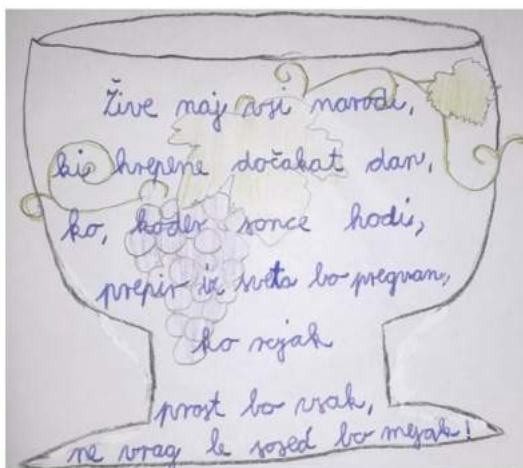 Žive naj vsi narodi,
ki hrepene dočakat dan,
ko, koder sonce hodi,
prepir iz sveta bo pregnan,
ko rojak
prost bo vsak,
ne vrag le sosed bo mejak!